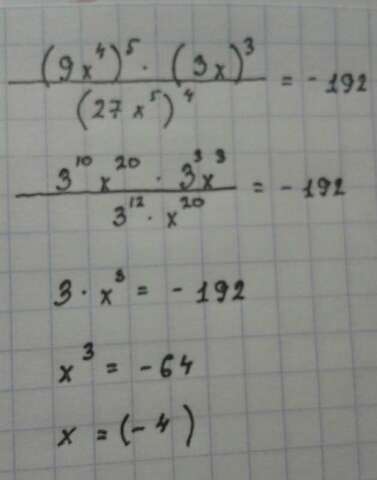 (9x⁴)⁵ · (3x)³ / (27x⁵)⁴ = - 192
3¹⁰ x²⁰ · 3³x³ / 3¹² · x²⁰ = - 192
3 · x³ = - 192
x³ = - 64
x = (- 4)